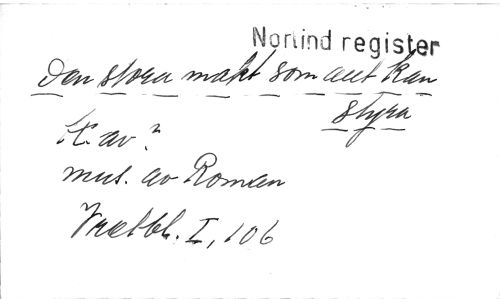 Norlind register
Den stora makt som allt kan
styra
T. av?
mus. av Roman
I, 106